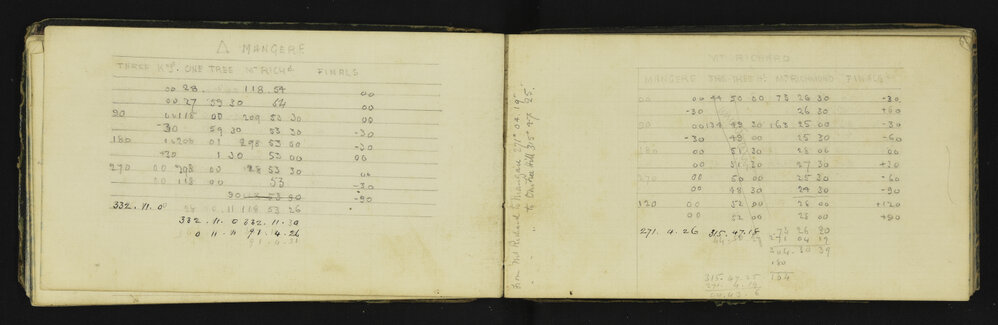 △ MANGERE
THREE Kgs. ONE TREE Mt RICHd. FINALS
00 28 118 54 00
00 27 59 30 64 00
90 00 209 53 30 00
-30 59 30 53 30 -30
180 01 298 53 00 -30
+30 1 30 53 00 00
270 00 208 00 28 53 30 00
00 118 00 53 -30
90 -90
332.11.0 11 118 53 26
332.11.0 632.11.30
0 11.11 91.4.26
91.4.21
from Mt Richard to Mangere 271° 04' 19"
" " to One Tree Hill 315° 47' 25"
MT RICHARD
MANGERE ONE TREE H. Mt RICHMOND FINALS
00 00 44 50 00 73 26 30 -30
00 26 30 +60
90 00 134 49 30 163 25 00 -30
-30 49 00 25 30 -60
180 00 51 30 28 00 00
00 51 30 27 30 +30
270 00 50 00 25 30 -60
00 48 30 24 30 -90
120 00 52 00 28 00 +120
00 52 00 28 00 +90
271.4.26 315.47.18 73 26 20
271 04 19
344 30 39
180
164
315.47.25
271.4.19